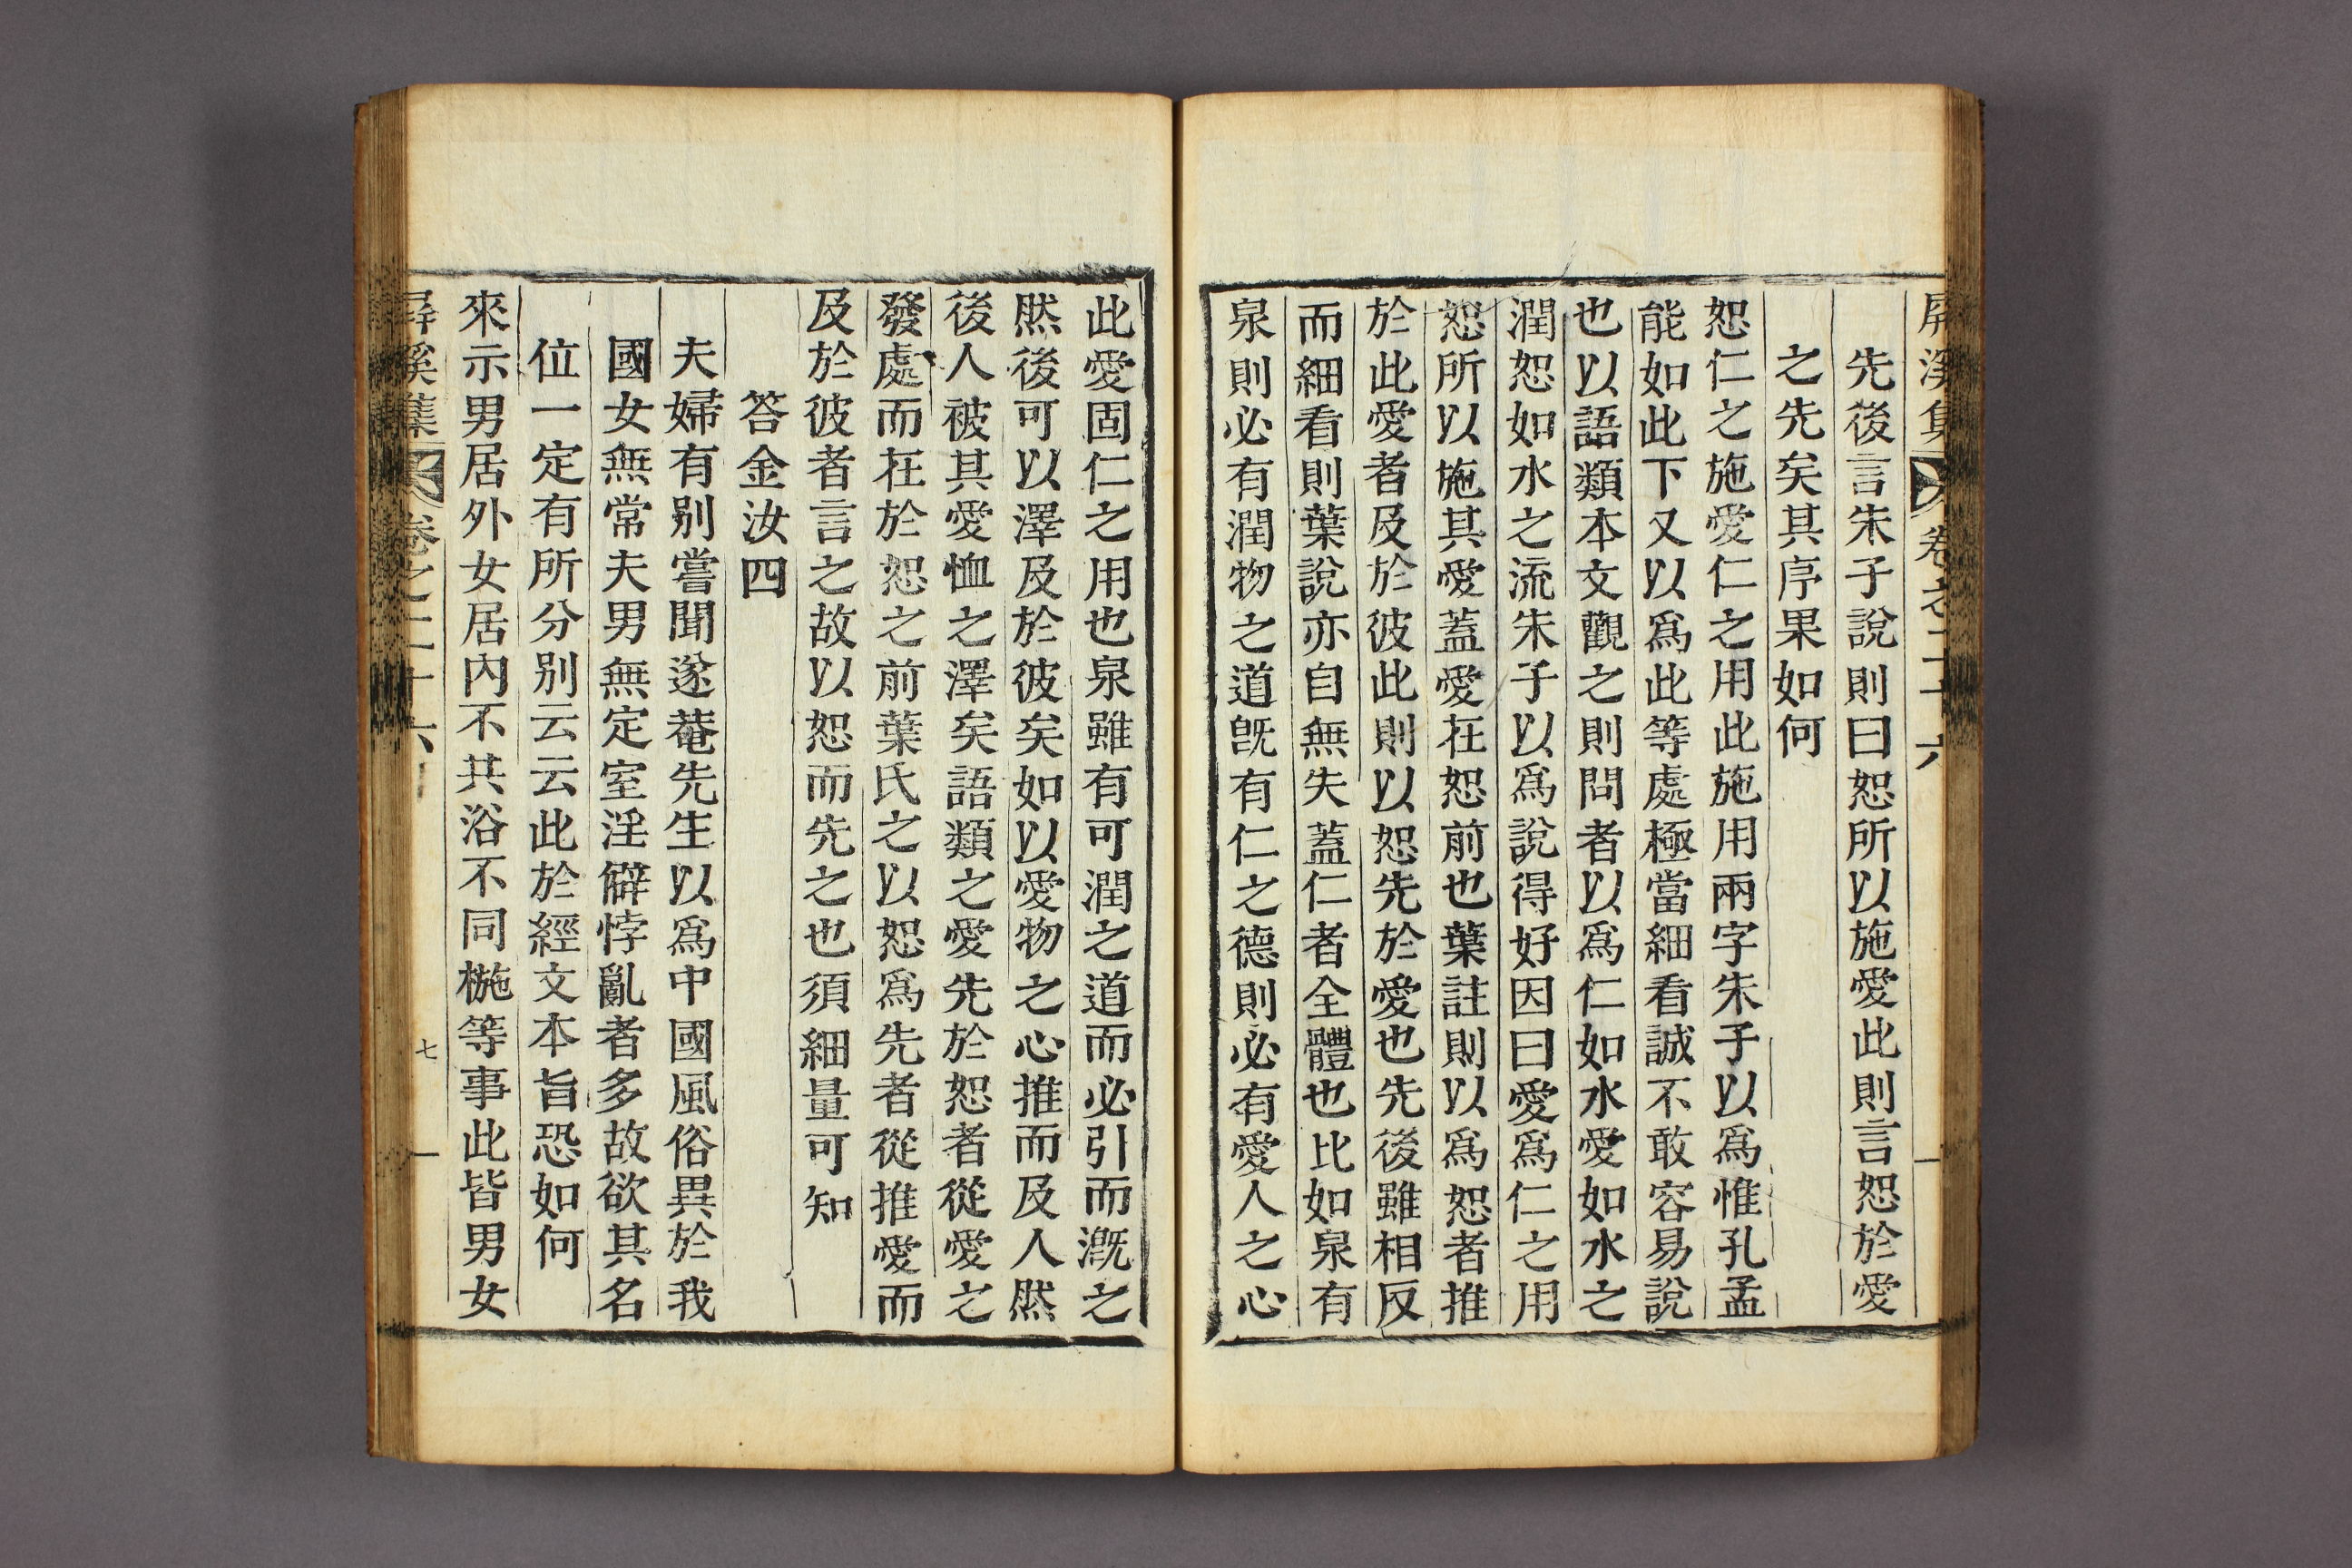 屛溪集 卷之二十六
先後言朱子說則曰恕所以施愛此則言恕於愛
之先矣其序果如何
恕仁之施愛仁之用此施用兩字朱子以爲惟孔孟
能如此下又以爲此等處極當細看誠不敢容易說
也以語類本文觀之則問者以爲仁如水愛如水之
潤恕如水之流朱子以爲說得好因曰愛爲仁之用
恕所以施其愛蓋愛在恕前也葉註則以爲恕者推
於此愛者及於彼此則以恕先於愛也先後雖相反
而細看則葉說亦自無失蓋仁者全體也比如泉有
泉則必有潤物之道旣有仁之德則必有愛人之心
此愛固仁之用也泉雖有可潤之道而必引而漑之
然後可以澤及於彼矣如以愛物之心推而及人然
後人被其愛恤之澤矣語類之愛先於恕者從愛之
發處而在於恕之前葉氏之以恕爲先者從推愛而
及於彼者言之故以恕而先之也須細量可知
答金汝四
夫婦有別嘗聞遂菴先生以爲中國風俗異於我
國女無常夫男無定室淫僻悖亂者多故欲其名
位一定有所分別云云此於經文本旨恐如何
來示男居外女居內不共浴不同椸等事此皆男女
屛溪集 卷之二十六 七